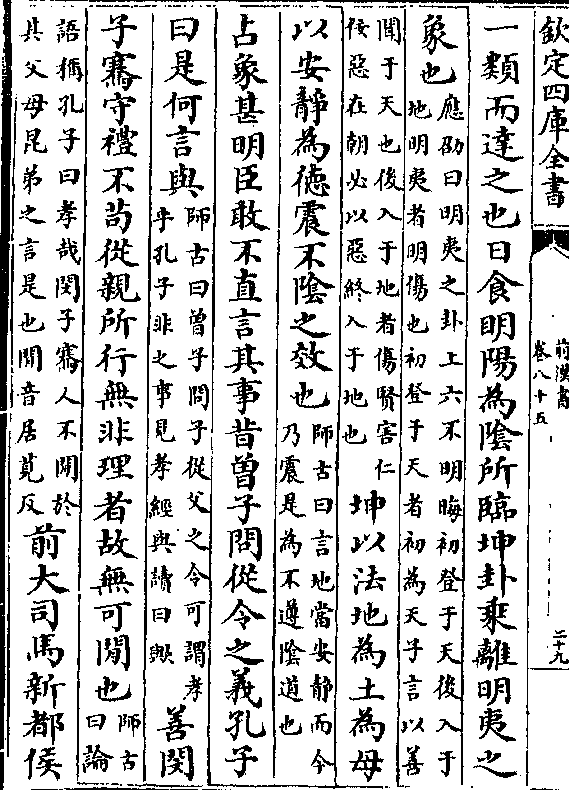 欽定四庫全書
前漢書
卷八十五
二十九
一類而達之也日食明陽為陰所臨坤卦乘離明夷之
象也
應劭曰明夷之卦上六不明晦初登于天後入于
地明夷者明傷也初登于天者初為天子言以善
聞于天也後入于地者傷賢害仁
佞惡在朝必以惡終入于地也
坤以法地為土為母
以安靜為德震不陰之效也
師古曰言地當安靜而今
乃震是為不遵陰道也
占象甚明臣敢不直言其事昔曾子問從令之義孔子
曰是何言與
師古曰曾子問子從父之令可謂孝
乎孔子非之事見孝經與讀曰歟
善閔
子騫守禮不苟從親所行無非理者故無可閒也
師古
曰論
語稱孔子曰孝哉閔子騫人不閒於
其父母昆弟之言是也閒音居莧反
前大司馬新都侯